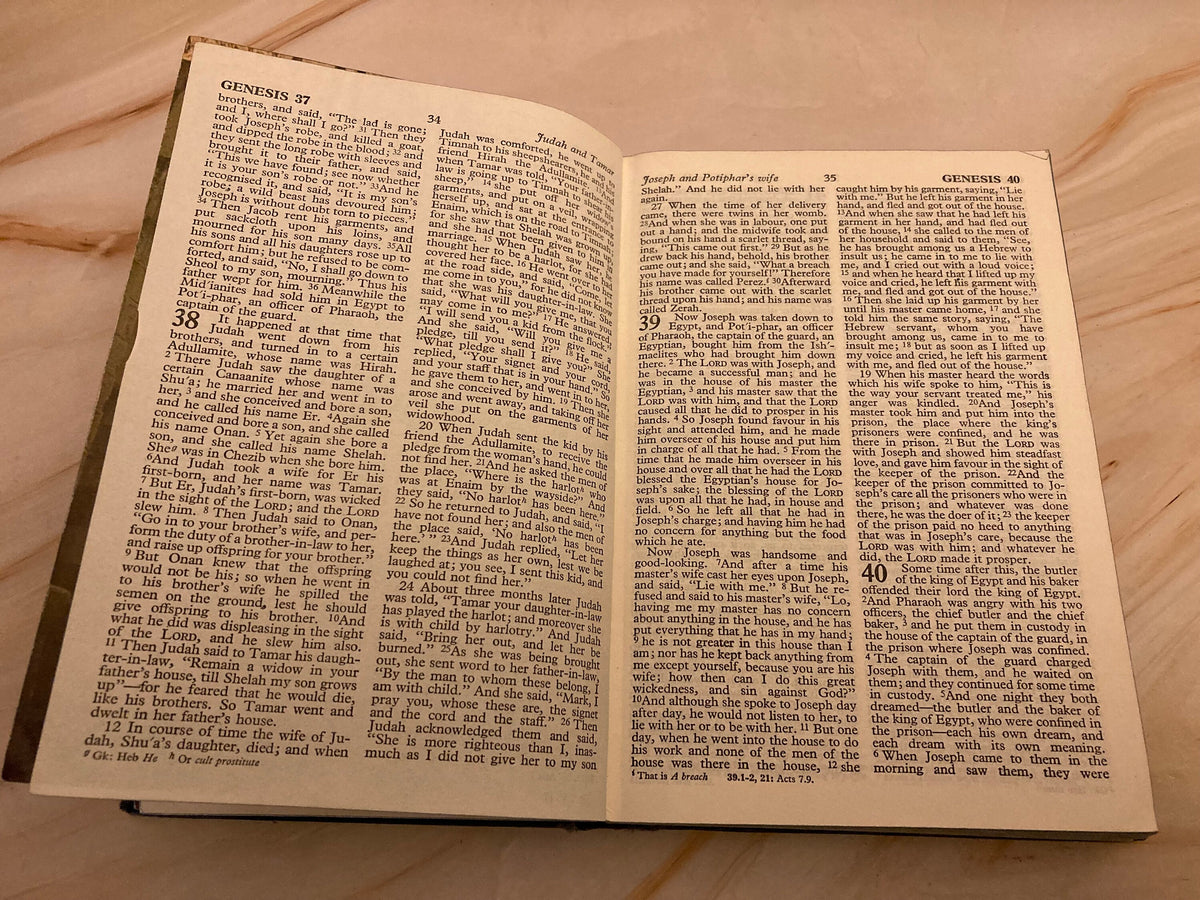 GENESIS 37
34
Judah and Tamar
brothers, and said, “The lad is gone;
and I, where shall I go?” 31 Then they
took Joseph's robe, and killed a goat,
and dipped the robe in the blood; 32 and
they sent the long robe with sleeves and
brought it to their father, and said,
“This we have found; see now whether
it is your son's robe or not.” 33 And he
recognised it, and said, “It is my son's
robe; a wild beast has devoured him;
Joseph is without doubt torn to pieces.”
34 Then Jacob rent his garments, and
put sackcloth upon his loins, and
mourned for his son many days. 35 All
his sons and all his daughters rose up to
comfort him; but he refused to be com-
forted, and said, “No, I shall go down to
Sheol to my son, mourning.” Thus his
father wept for him. 36 Meanwhile the
Mid′ianites had sold him in Egypt to
Pot′i-phar, an officer of Pharaoh, the
captain of the guard.
38 It happened at that time that
Judah went down from his
brothers, and turned in to a certain
Adullamite, whose name was Hirah.
2 There Judah saw the daughter of a
certain Canaanite whose name was
Shu′a; he married her and went in to
her, 3 and she conceived and bore a son,
and he called his name Er. 4 Again she
conceived and bore a son, and she called
his name Onan. 5 Yet again she bore a
son, and she called his name Shelah.
She g was in Chezib when she bore him.
6 And Judah took a wife for Er his
first-born, and her name was Tamar.
7 But Er, Judah's first-born, was wicked
in the sight of the LORD; and the LORD
slew him. 8 Then Judah said to Onan,
“Go in to your brother's wife, and per-
form the duty of a brother-in-law to her,
and raise up offspring for your brother.”
9 But Onan knew that the offspring
would not be his; so when he went in
to his brother's wife he spilled the
semen on the ground, lest he should
give offspring to his brother. 10 And
what he did was displeasing in the sight
of the LORD, and he slew him also.
11 Then Judah said to Tamar his daugh-
ter-in-law, “Remain a widow in your
father's house, till Shelah my son grows
up”—for he feared that he would die,
like his brothers. So Tamar went and
dwelt in her father's house.
12 In course of time the wife of Ju-
dah, Shu′a's daughter, died; and when
g Gk: Heb He h Or cult prostitute
Judah was comforted, he went up to
Timnah to his sheepshearers, he and his
friend Hirah the Adullamite. 13 And
when Tamar was told, “Your father-in-
law is going up to Timnah to shear his
sheep,” 14 she put off her widow's
garments, and put on a veil, wrapping
herself up, and sat at the entrance to
Enaim, which is on the road to Timnah;
for she saw that Shelah was grown up,
and she had not been given to him in
marriage. 15 When Judah saw her, he
thought her to be a harlot, for she had
covered her face. 16 He went over to her
at the road side, and said, “Come, let
me come in to you,” for he did not know
that she was his daughter-in-law. She
said, “What will you give me, that you
may come in to me?” 17 He answered,
“I will send you a kid from the flock.”
And she said, “Will you give me a
pledge, till you send it?” 18 He said,
“What pledge shall I give you?” She
replied, “Your signet and your cord,
and your staff that is in your hand.” So
he gave them to her, and went in to her,
and she conceived by him. 19 Then she
arose and went away, and taking off her
veil she put on the garments of her
widowhood.
20 When Judah sent the kid by his
friend the Adullamite, to receive the
pledge from the woman's hand, he could
not find her. 21 And he asked the men of
the place, “Where is the harlot h who
was at Enaim by the wayside?” And
they said, “No harlot h has been here.”
22 So he returned to Judah, and said, “I
have not found her; and also the men of
the place said, ‘No harlot h has been
here.’ ” 23 And Judah replied, “Let her
keep the things as her own, lest we be
laughed at; you see, I sent this kid, and
you could not find her.”
24 About three months later Judah
was told, “Tamar your daughter-in-law
has played the harlot; and moreover she
is with child by harlotry.” And Judah
said, “Bring her out, and let her be
burned.” 25 As she was being brought
out, she sent word to her father-in-law,
“By the man to whom these belong, I
am with child.” And she said, “Mark, I
pray you, whose these are, the signet
and the cord and the staff.” 26 Then
Judah acknowledged them and said,
“She is more righteous than I, inas-
much as I did not give her to my son
Joseph and Potiphar's wife
35
GENESIS 40
Shelah.” And he did not lie with her
again.
27 When the time of her delivery
came, there were twins in her womb.
28 And when she was in labour, one put
out a hand; and the midwife took and
bound on his hand a scarlet thread, say-
ing, “This came out first.” 29 But as he
drew back his hand, behold, his brother
came out; and she said, “What a breach
you have made for yourself!” Therefore
his name was called Perez. i 30 Afterward
his brother came out with the scarlet
thread upon his hand; and his name was
called Zerah.
39 Now Joseph was taken down to
Egypt, and Pot′i-phar, an officer
of Pharaoh, the captain of the guard, an
Egyptian, bought him from the Ish′-
maelites who had brought him down
there. 2 The LORD was with Joseph, and
he became a successful man; and he
was in the house of his master the
Egyptian, 3 and his master saw that the
LORD was with him, and that the LORD
caused all that he did to prosper in his
hands. 4 So Joseph found favour in his
sight and attended him, and he made
him overseer of his house and put him
in charge of all that he had. 5 From the
time that he made him overseer in his
house and over all that he had the LORD
blessed the Egyptian's house for Jo-
seph's sake; the blessing of the LORD
was upon all that he had, in house and
field. 6 So he left all that he had in
Joseph's charge; and having him he had
no concern for anything but the food
which he ate.
Now Joseph was handsome and
good-looking. 7 And after a time his
master's wife cast her eyes upon Joseph,
and said, “Lie with me.” 8 But he re-
fused and said to his master's wife, “Lo,
having me my master has no concern
about anything in the house, and he has
put everything that he has in my hand;
9 he is not greater in this house than I
am; nor has he kept back anything from
me except yourself, because you are his
wife; how then can I do this great
wickedness, and sin against God?”
10 And although she spoke to Joseph day
after day, he would not listen to her, to
lie with her or to be with her. 11 But one
day, when he went into the house to do
his work and none of the men of the
house was there in the house, 12 she
i That is A breach 39.1-2, 21: Acts 7.9.
caught him by his garment, saying, “Lie
with me.” But he left his garment in her
hand, and fled and got out of the house.
13 And when she saw that he had left his
garment in her hand, and had fled out
of the house, 14 she called to the men of
her household and said to them, “See,
he has brought among us a Hebrew to
insult us; he came in to me to lie with
me, and I cried out with a loud voice;
15 and when he heard that I lifted up my
voice and cried, he left his garment with
me, and fled and got out of the house.”
16 Then she laid up his garment by her
until his master came home, 17 and she
told him the same story, saying, “The
Hebrew servant, whom you have
brought among us, came in to me to
insult me; 18 but as soon as I lifted up
my voice and cried, he left his garment
with me, and fled out of the house.”
19 When his master heard the words
which his wife spoke to him, “This is
the way your servant treated me,” his
anger was kindled. 20 And Joseph's
master took him and put him into the
prison, the place where the king's
prisoners were confined, and he was
there in prison. 21 But the LORD was
with Joseph and showed him steadfast
love, and gave him favour in the sight of
the keeper of the prison. 22 And the
keeper of the prison committed to Jo-
seph's care all the prisoners who were in
the prison; and whatever was done
there, he was the doer of it; 23 the keeper
of the prison paid no heed to anything
that was in Joseph's care, because the
LORD was with him; and whatever he
did, the LORD made it prosper.
40 Some time after this, the butler
of the king of Egypt and his baker
offended their lord the king of Egypt.
2 And Pharaoh was angry with his two
officers, the chief butler and the chief
baker, 3 and he put them in custody in
the house of the captain of the guard, in
the prison where Joseph was confined.
4 The captain of the guard charged
Joseph with them, and he waited on
them; and they continued for some time
in custody. 5 And one night they both
dreamed—the butler and the baker of
the king of Egypt, who were confined in
the prison—each his own dream, and
each dream with its own meaning.
6 When Joseph came to them in the
morning and saw them, they were